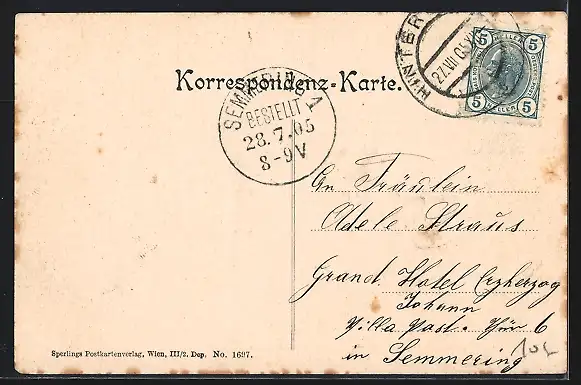 HINTER
27 VII 05
5 HELLER 5
5 HELLER 5
Korrespondenz-Karte.
SEMMERING
BESTELLT
28.7.05
8-9V
An Fräulein
Adele Straus
Grand Hotel Erzherzog
Johann
Villa Vast. Thür 6
in Semmering
Sperlings Postkartenverlag, Wien, III/2. Dep. No. 1697.